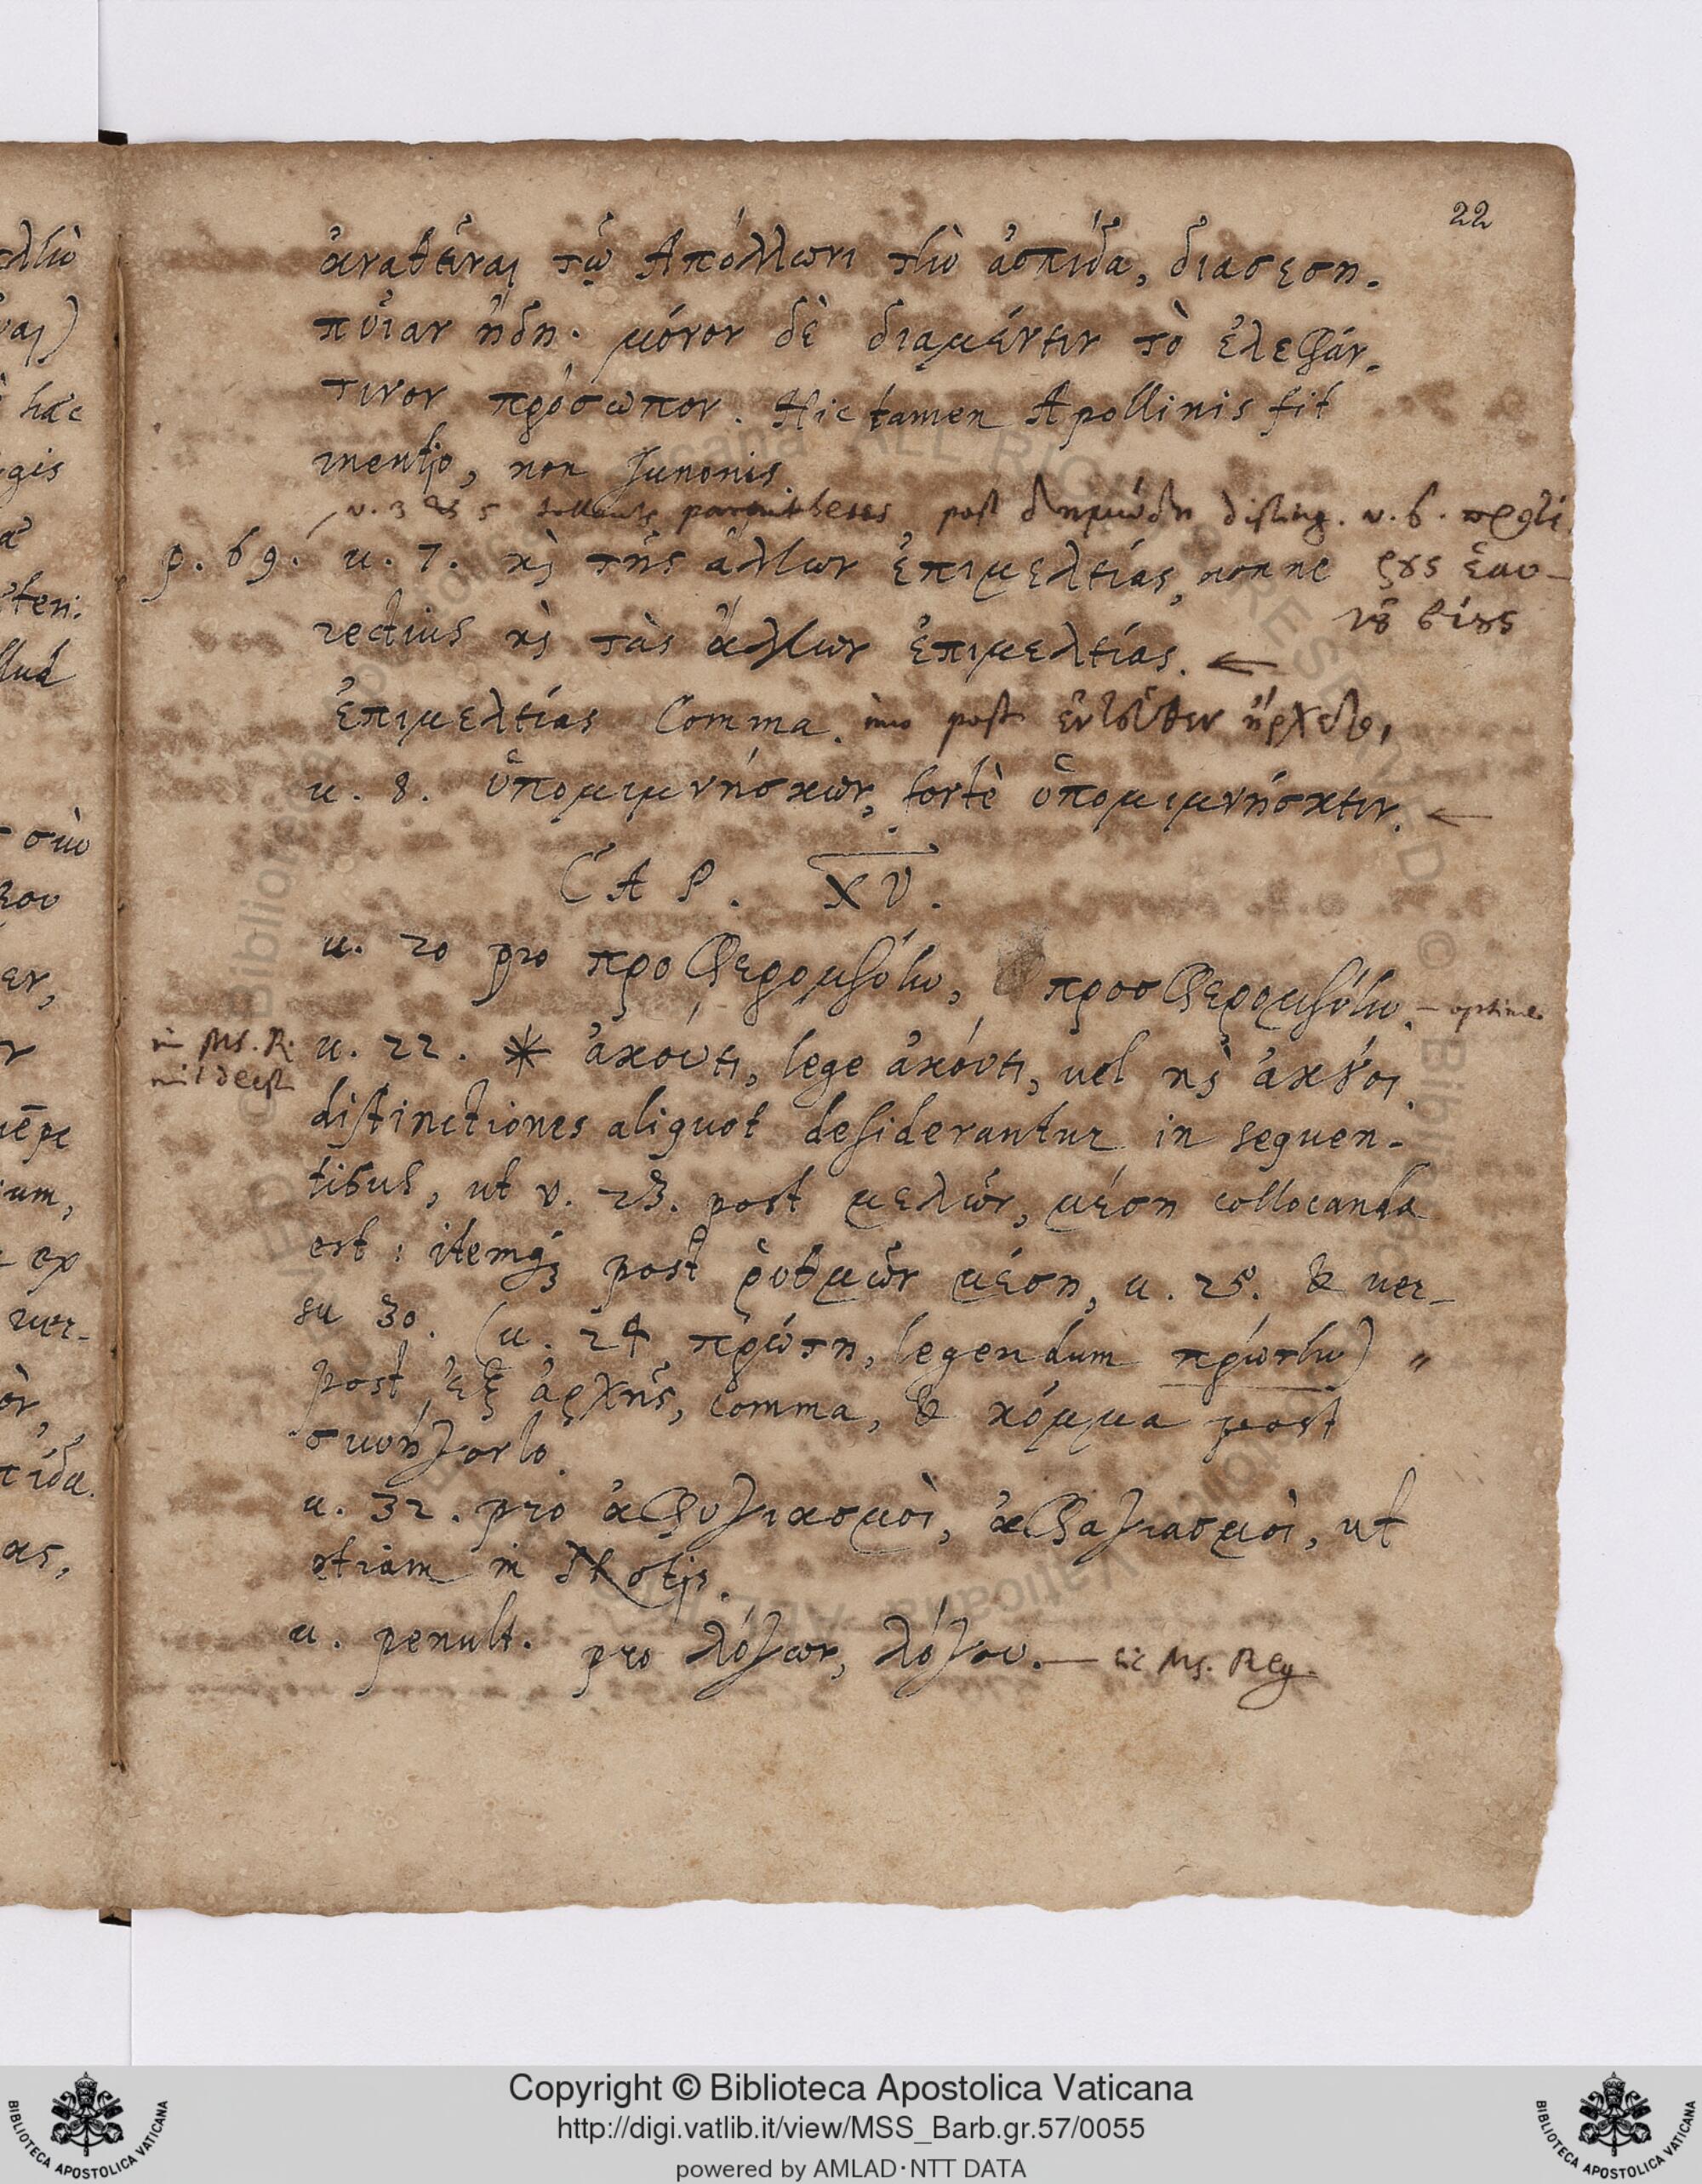 22
ἀναθεῖναι τῷ Ἀπόλλωνι τὴν ἀσπίδα, διασεση-
πυῖαν ἤδη. μόνον δὲ διαμένειν τὸ ἐλεφάν-
τινον πρόσωπον. Hic tamen Apollinis fit
mentio, non Junonis.
v. 3 & 5 parentheses, post δημώδη disting. v. 6.
p. 69. u. 7. κὶ τῆς ἄλλων ἐπιμελείας, nonne
ἑαυ-
τοῦ βίους
rectius κὶ τὰς ἄλλων ἐπιμελείας.
ἐπιμελείας Comma. imo post ἐντεῦθεν ἤρχετο,
u. 8. ὑπομιμνήσκων, fortè ὑπομιμνήσκειν.
CAP. XV.
u. 20 pro προφερομένην, προσφερομένην. — optime
in Ms. R.
nil deest
u. 22. * ἀκουτι, lege ἀκόντι, vel κὶ ἀκούοι.
distinctiones aliquot desiderantur in sequen-
tibus, ut v. 23. post μελῶν, μέση collocanda
est: itemq; post ῥυθμῶν μέση, u. 25. & uer-
su 30. (u. 24 πρώτη, legendum πρώτην)
post ἐξ ἀρχῆς, comma, & κόμμα post
u. 32. pro ἀφυγιασμοὶ, ἀφαγιασμοὶ, ut
etiam in Notis.
u. penult. pro λόγων, λόγου. — sic Ms. Reg.
Copyright © Biblioteca Apostolica Vaticana
http://digi.vatlib.it/view/MSS_Barb.gr.57/0055
powered by AMLAD·NTT DATA
BIBLIOTECA APOSTOLICA VATICANA
BIBLIOTECA APOSTOLICA VATICANA